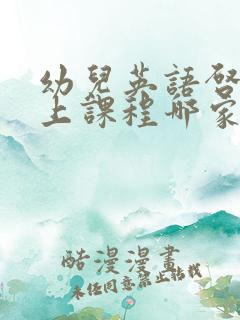 幼兒英語啓
上課程哪家
酷漫漫畫
未经同意禁止转载